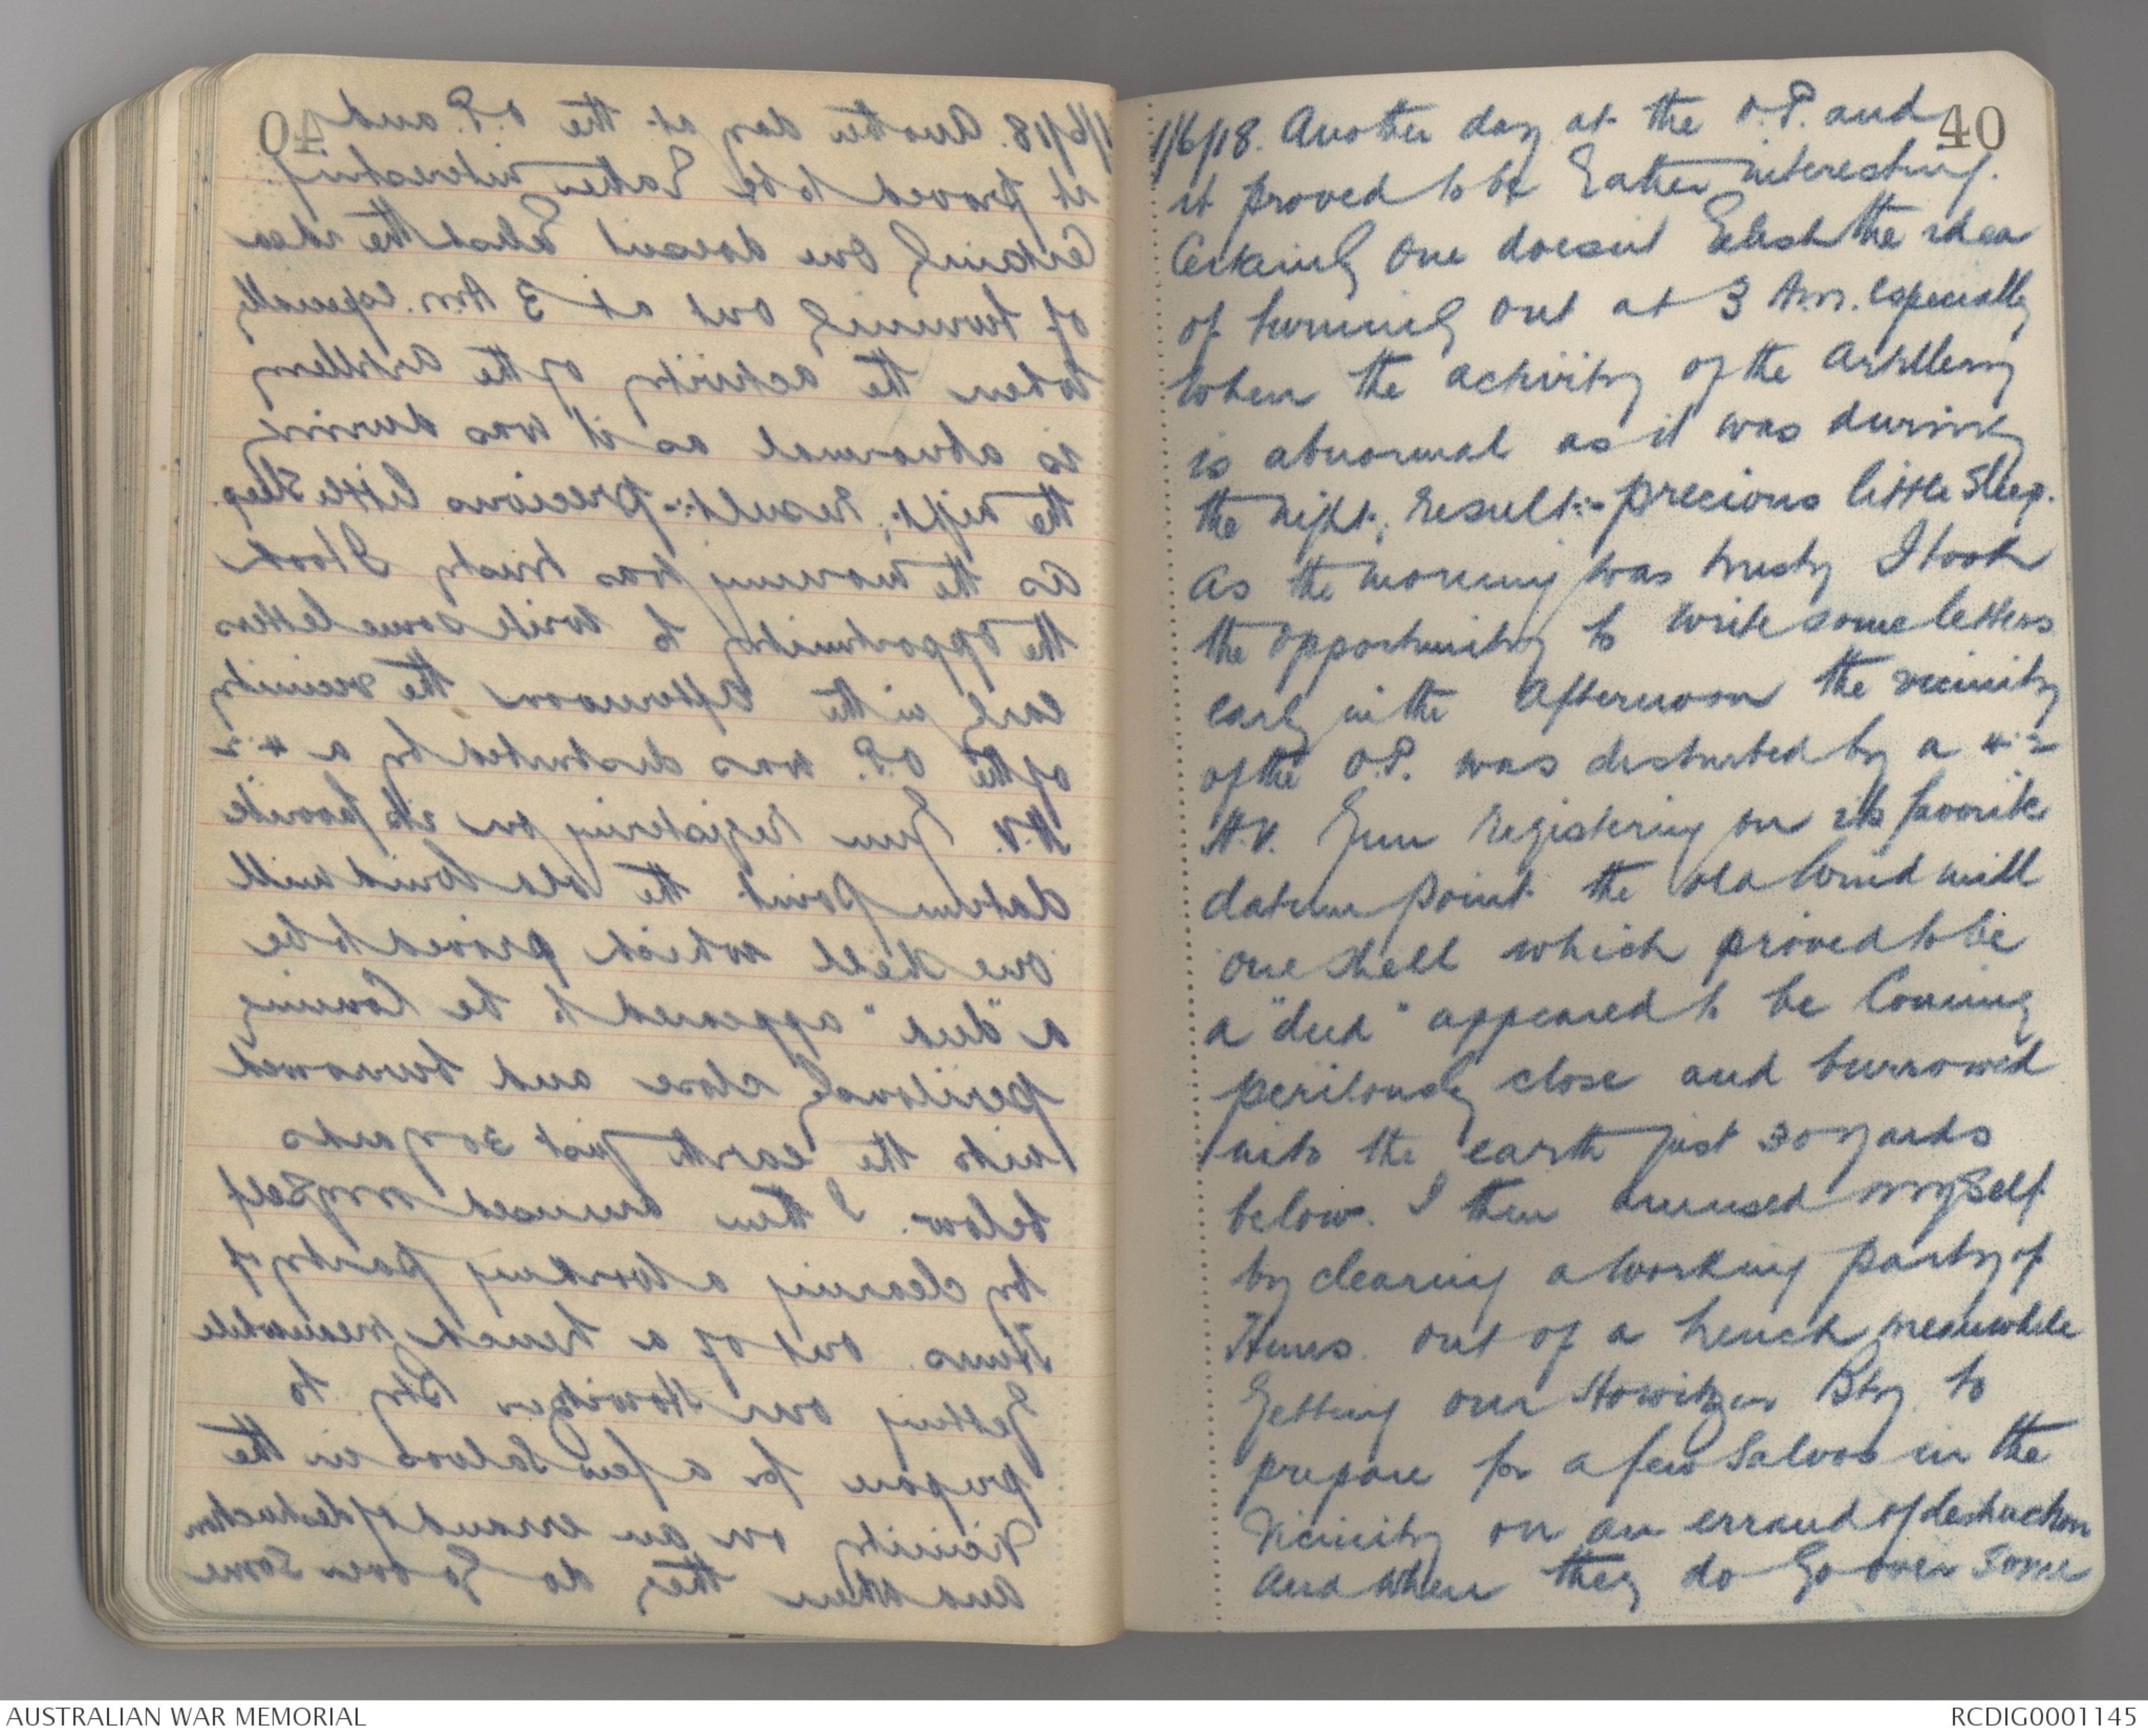 40
1/6/18. Another day at the O.P. and
it proved to be Rather interesting.
Certainly one doesnt Relish the idea
of turning out at 3 A.m. especially
when the activity of the Artillery
is abnormal as it was during
the night; result:- precious little Sleep.
As the morning was misty I took
the opportunity to write some letters
early in the afternoon the vicinity
of the O.P. was disturbed by a 4.2
H.V. Gun registering on its favorite
datum point the old Wind mill
one shell which proved to be
a "dud" appeared to be Coming
perilously close and burrowed
into the earth just 30 yards
below. I then amused myself
by clearing a working party of
Huns out of a trench meanwhile
Getting our Howitzer Bty to
prepare for a few Salvos in the
Vicinity on an errand of destruction
And when they do Go over Some
AUSTRALIAN WAR MEMORIAL
RCDIG0001145